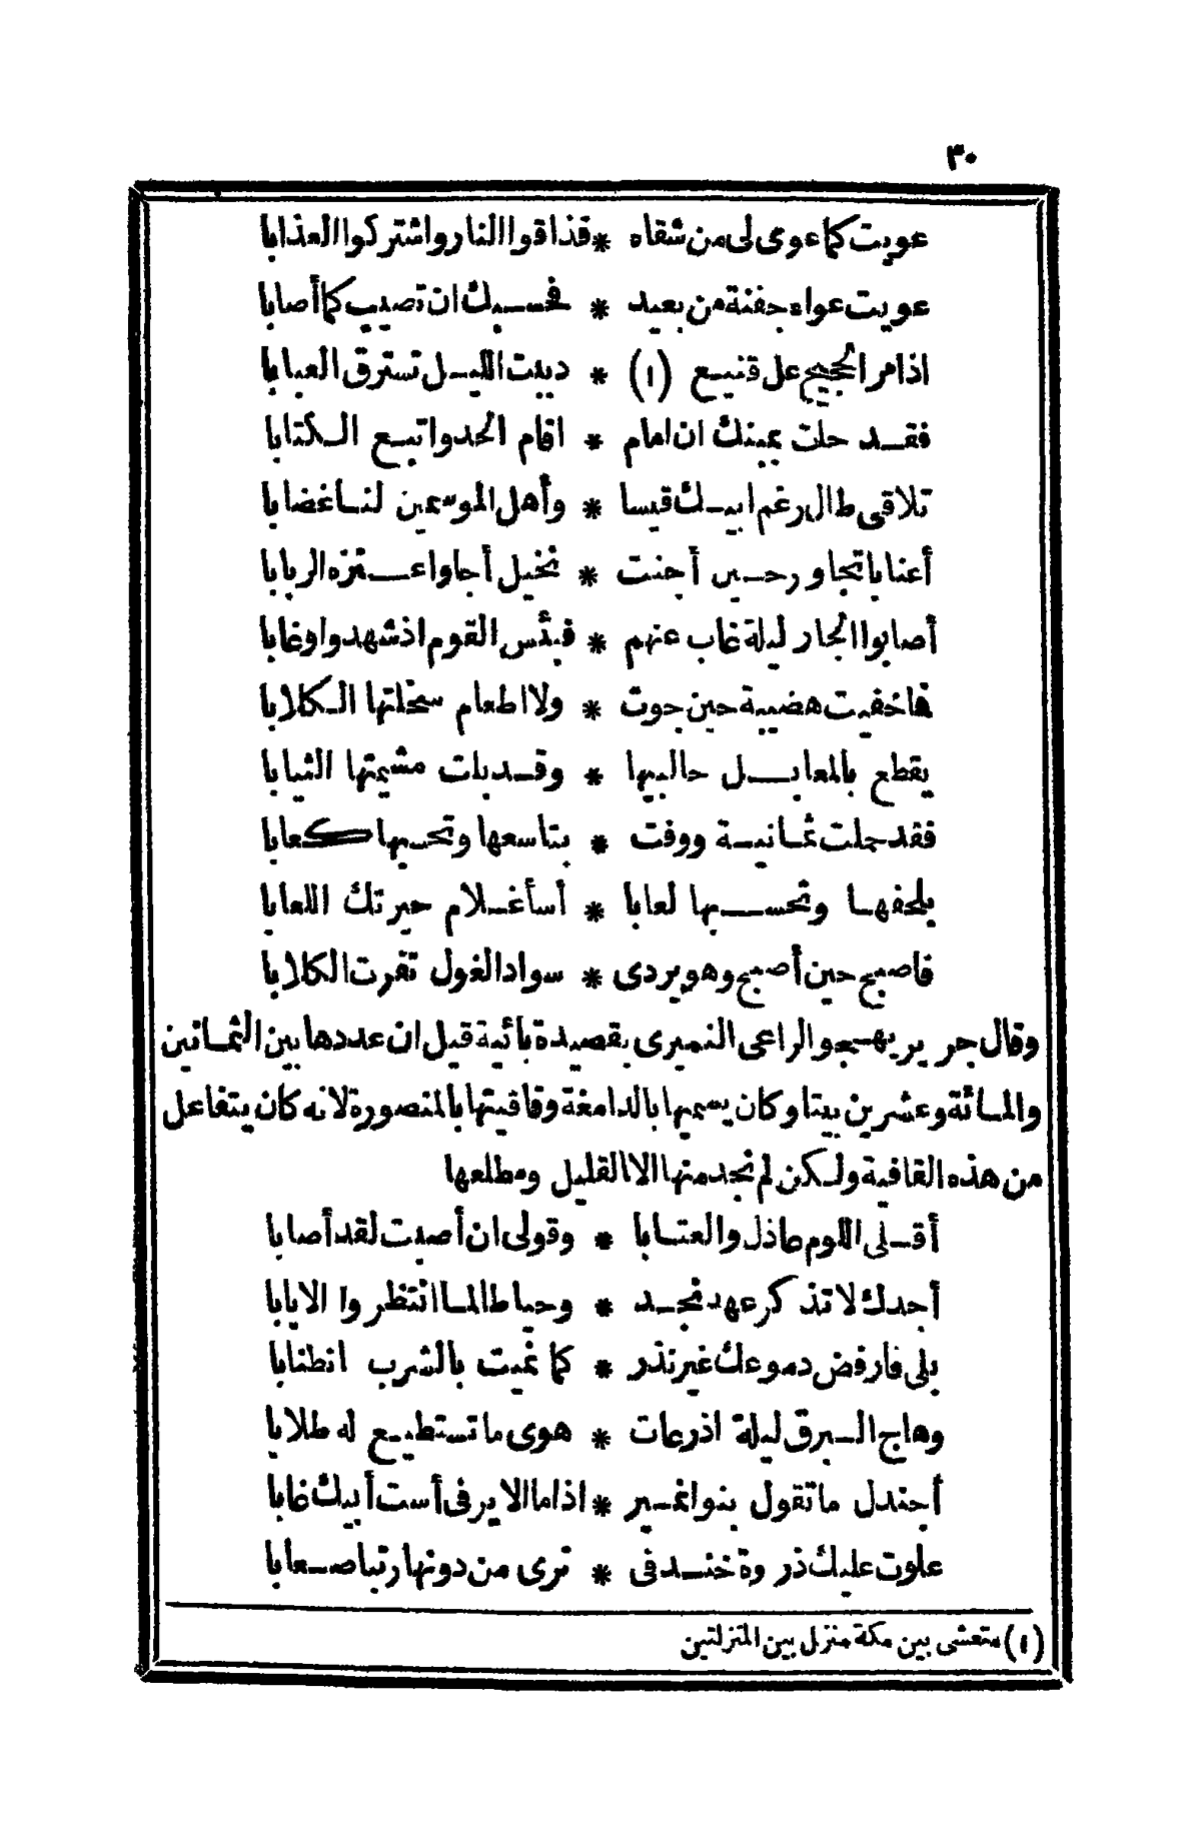 ٣٠
عويت كما عوى لى من شقاه * فذاقوا النار واشتركوا العذابا
عويت عواء جفنة من بعيد * فحسبك ان تصيب كما أصابا
اذا مر الحجيج على قنيع (١) * دببت الليل تسترق العيابا
فقد حلت يمينك ان امام * اقام الحد واتبع الكتابا
تلاقى طال رغم ابيك قيسا * وأهل الموسمين لنا غضابا
أعنابا تجاور حين أجنت * نخيل أجا واعنزه الربابا
أصابوا الجار ليلة غاب عنهم * فبئس القوم اذ شهدوا وغابا
فما خفيت هضيبة حين جوت * ولا اطعام سخلتها الكلابا
يقطع بالمعابل حالبيها * وقد بلت مشيمتها الثيابا
فقد حملت ثمانية ووفت * بتاسعها وتحسبها كعابا
يلحفها وتحسبها لعابا * أسأغلام حيرتك اللعابا
فاصبح حين أصبح وهو يردى * سواد الغول تفرت الكلابا
وقال جرير يهجو الراعى النميرى بقصيدة بائية قيل ان عددها بين الثمانين
والمائة وعشرين بيتا وكان يسميها بالدامغة وقافيتها بالمنصورة لانه كان يتفاعل
من هذه القافية ولكن لم نجد منها الا القليل ومطلعها
أقلى اللوم عاذل والعتابا * وقولى ان أصبت لقد أصابا
أجدك لا تذكر عهد نجد * وحيا طالما انتظروا الايابا
بلى فارفض دموعك غير نذر * كما غيت بالشرب انطنابا
وهاج البرق ليلة اذرعات * هوى ما تستطيع له طلابا
أجندل ما تقول بنو انمير * اذا ما الاير فى أست أبيك غابا
علوت عليك ذروة خندفى * ترى من دونها رتبا صعابا
(١) متعشى بين مكة منزل بين المنزلتين